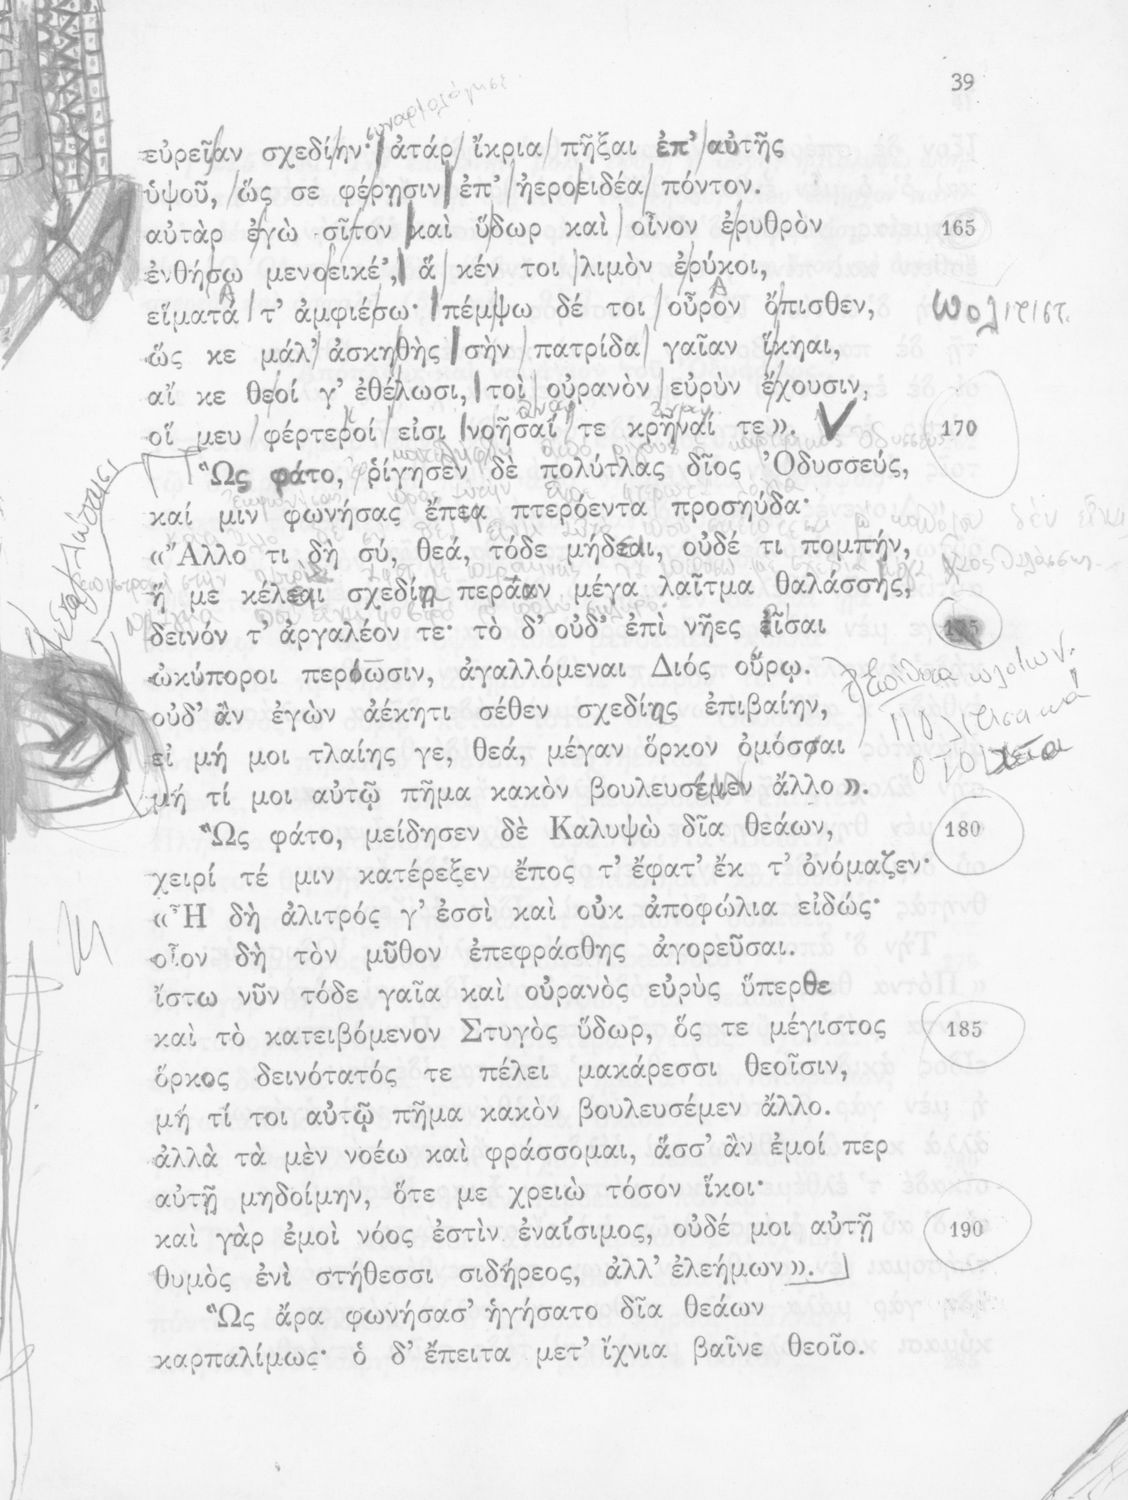 39
συναρμολόγησε
εὐρεῖαν σχεδίην· ἀτάρ ἴκρια πῆξαι ἐπ’ αὐτῆς
ὑψοῦ, ὥς σε φέρῃσιν ἐπ’ ἠεροειδέα πόντον.
αὐτὰρ ἐγὼ σῖτον καὶ ὕδωρ καὶ οἶνον ἐρυθρὸν 165
ἐνθήσω μενοεικέ’, ἅ κέν τοι λιμὸν ἐρύκοι,
εἵματά τ’ ἀμφιέσω· πέμψω δέ τοι οὖρον ὄπισθεν,
ὥς κε μάλ’ ἀσκηθὴς σὴν πατρίδα γαῖαν ἵκηαι,
αἴ κε θεοί γ’ ἐθέλωσι, τοὶ οὐρανὸν εὐρὺν ἔχουσιν,
οἵ μευ φέρτεροί εἰσι νοῆσαί τε κρῆναί τε». 170
Ὣς φάτο, ῥίγησεν δὲ πολύτλας δῖος Ὀδυσσεύς,
καί μιν φωνήσας ἔπεα πτερόεντα προσηύδα·
«Ἄλλο τι δὴ σύ, θεά, τόδε μήδεαι, οὐδέ τι πομπήν,
ἥ με κέλεαι σχεδίῃ περάαν μέγα λαῖτμα θαλάσσης,
δεινόν τ’ ἀργαλέον τε· τὸ δ’ οὐδ’ ἐπὶ νῆες ἐῗσαι 175
ὠκύποροι περόωσιν, ἀγαλλόμεναι Διός οὔρῳ.
οὐδ’ ἂν ἐγὼν ἀέκητι σέθεν σχεδίης ἐπιβαίην,
εἰ μή μοι τλαίης γε, θεά, μέγαν ὅρκον ὀμόσσαι
μή τί μοι αὐτῷ πῆμα κακὸν βουλευσέμεν ἄλλο».
Ὣς φάτο, μείδησεν δὲ Καλυψὼ δῖα θεάων, 180
χειρί τέ μιν κατέρεξεν ἔπος τ’ ἔφατ’ ἔκ τ’ ὀνόμαζεν·
«Ἦ δὴ ἀλιτρός γ’ ἐσσὶ καὶ οὐκ ἀποφώλια εἰδώς·
οἷον δὴ τὸν μῦθον ἐπεφράσθης ἀγορεῦσαι.
ἴστω νῦν τόδε γαῖα καὶ οὐρανὸς εὐρὺς ὕπερθε
καὶ τὸ κατειβόμενον Στυγὸς ὕδωρ, ὅς τε μέγιστος 185
ὅρκος δεινότατός τε πέλει μακάρεσσι θεοῖσιν,
μή τί τοι αὐτῷ πῆμα κακὸν βουλευσέμεν ἄλλο.
ἀλλὰ τὰ μὲν νοέω καὶ φράσσομαι, ἅσσ’ ἂν ἐμοί περ
αὐτῇ μηδοίμην, ὅτε με χρειὼ τόσον ἵκοι·
καὶ γὰρ ἐμοὶ νόος ἐστὶν ἐναίσιμος, οὐδέ μοι αὐτῇ 190
θυμὸς ἐνὶ στήθεσσι σιδήρεος, ἀλλ’ ἐλεήμων».
Ὣς ἄρα φωνήσασ’ ἡγήσατο δῖα θεάων
καρπαλίμως· ὁ δ’ ἔπειτα μετ’ ἴχνια βαῖνε θεοῖο.